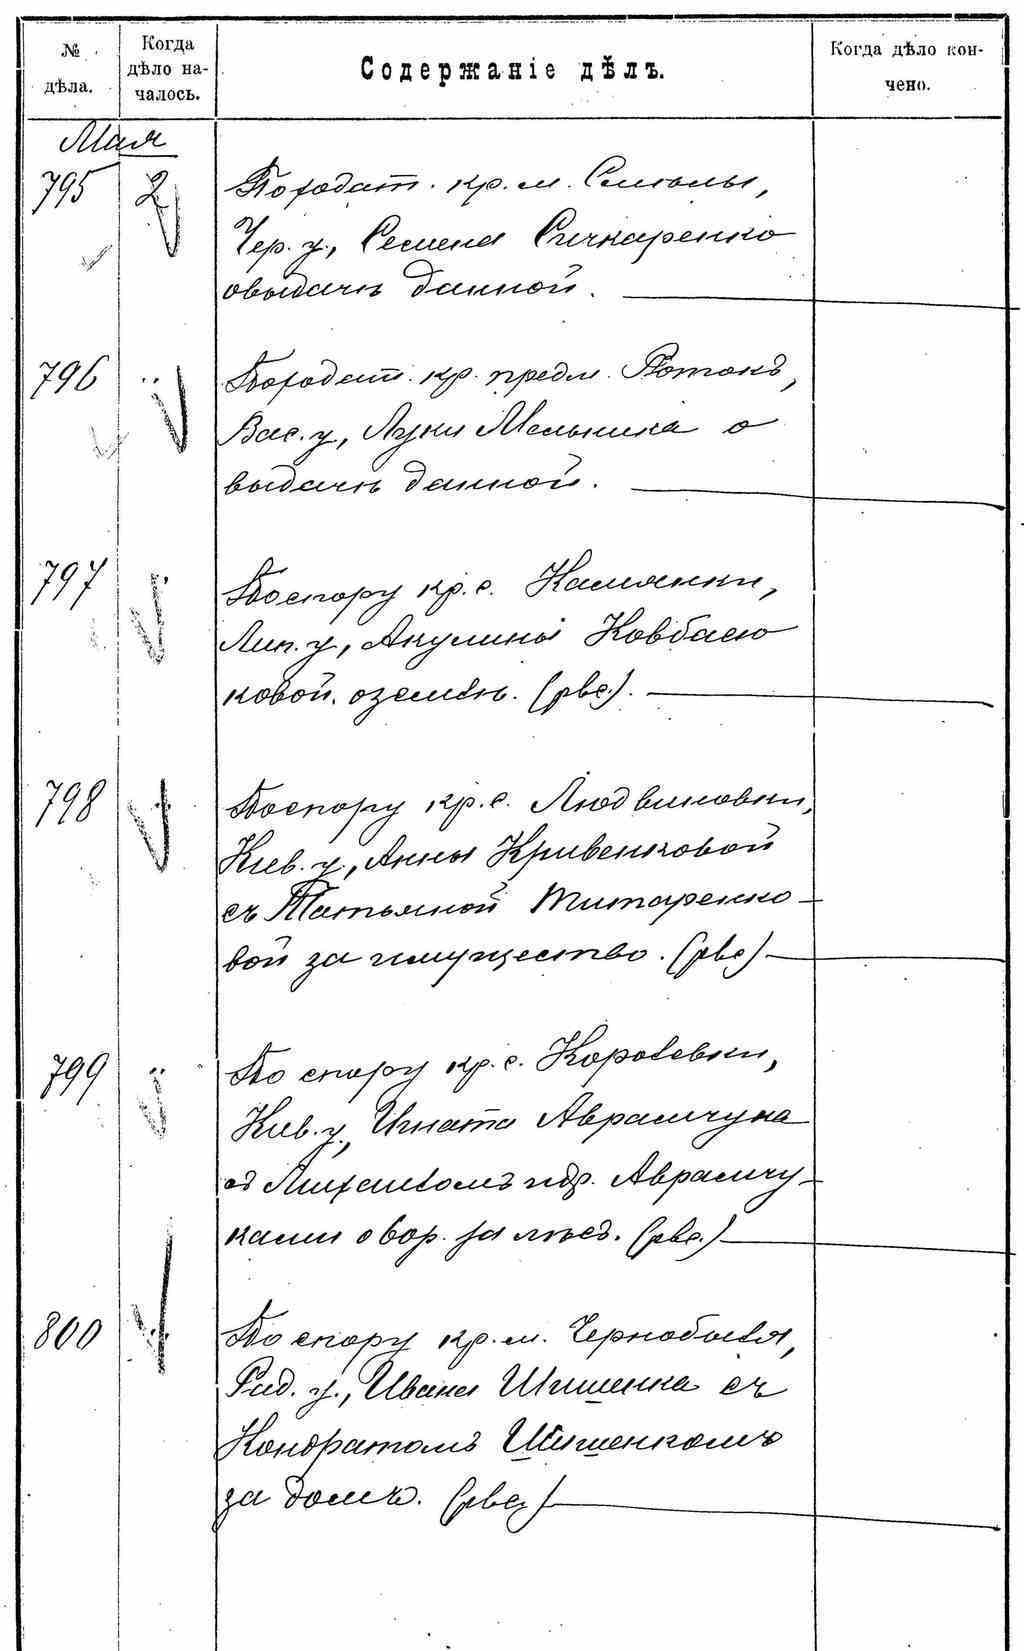 № дѣла.
Когда дѣло на-
чалось.
Содержаніе дѣлъ.
Когда дѣло кон-
чено.
Мая
795 2 По ходат. кр. м. Смѣлы,
Чер. у., Семена Сичкаренко
о выдачѣ данной.
796 " По ходат. кр. предм. Потокъ,
Вас. у., Луки Мельника о
выдачѣ данной.
797 " По спору кр. с. Камянки,
Лип. у., Акулины Ковбасю
ковой о землѣ. (рвс.).
798 " По спору кр. с. Людвиновки,
Кіев. у., Анны Кривенковой
съ Татьяной Титаренко-
вой за имущество. (рвс)
799 " По спору кр. с. Королевки,
Кіев. у., Игната Аврамчука
съ Михаиломъ и др. Аврамчу-
ками о вор. за лѣсъ. (рвс.)
800 " По спору кр. м. Чернобыля,
Рад. у., Ивана Шишенка съ
Кондратомъ Шишенкомъ
за домъ. (рвс)